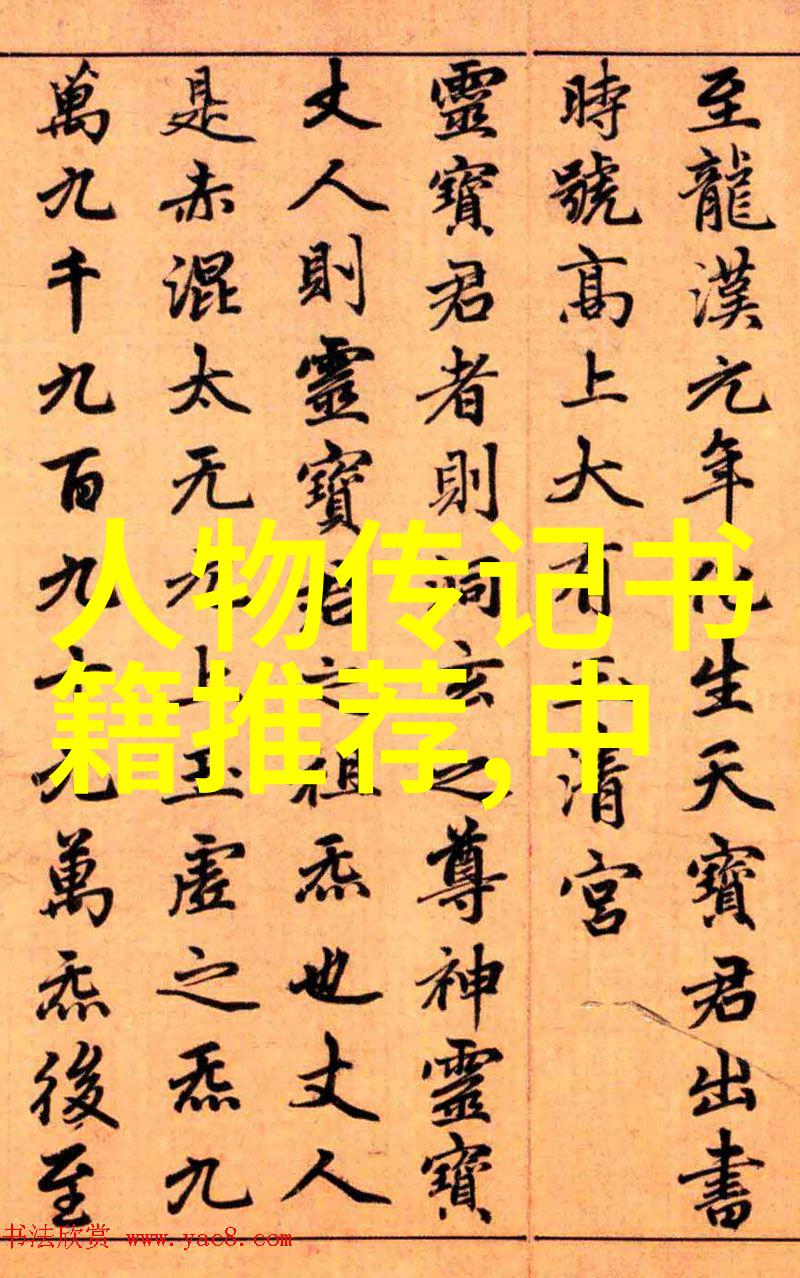 至龍漢元年化生天寶君出書
時號高上大有玉清宮
靈寶君者則洞玄之尊神靈寶
丈人則靈寶君之祖炁也丈人
是赤混太无元上玉虛之炁九
萬九千九百九十九萬炁後至
人物传记书
籍推荐,中
书法欣赏 www.yac8.com